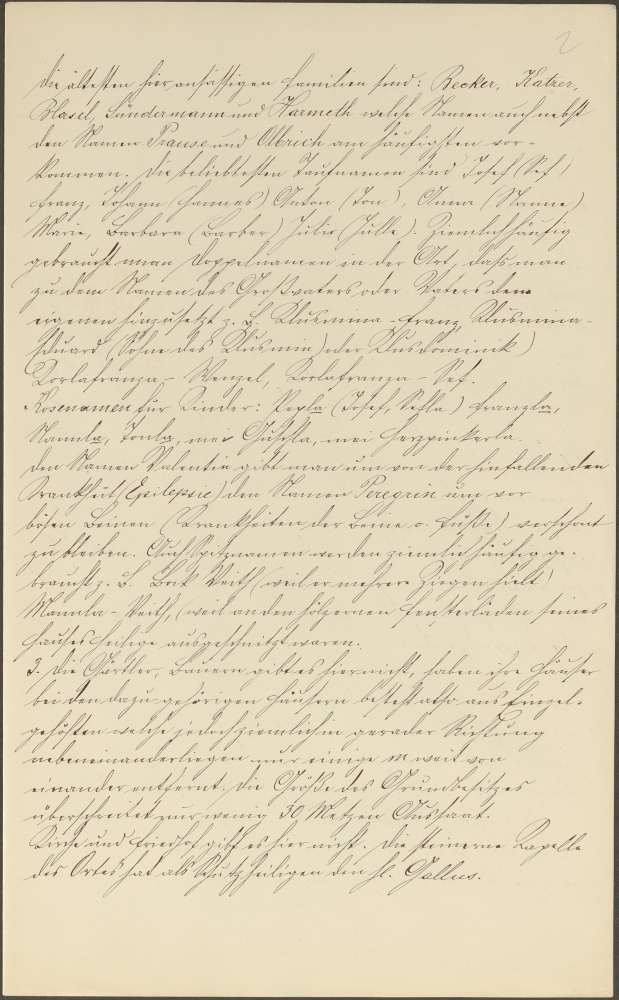 2
die ältesten hier ansässigen Familien sind: Becker, Katzer,
Blasel, Sündermann und Harmeth welche Namen auch nebst
den Namen Prause und Olbrich am häufigsten vor-
kommen. Die beliebtesten Taufnamen sind Josef (Sef)
Franz, Johann (Hannes) Anton (Ton), Anna (Nanne)
Marie, Barbara (Barber) Julie (Julle). Ziemlich häufig
gebraucht man Doppelnamen in der Art, dass man
zu dem Namen des Großvaters oder Vaters dem
eigenen hinzusetzt z. B. Klusmina-Franz, Klusmina-
Eduard (Söhne des Klusmin) oder Klusdominik)
Korlafranza- Wenzel, Korlafranza-Sef.
Kosenamen für Kinder: Pepla (Josef, Sefla) Franzla,
Nannla, Tonla, mei Guschla, mei Herzpinkerla.
den Namen Valentin gibt man um von der hinfallenden
Krankheit (Epilepsie) den Namen Peregrin um vor
bösen Beinen (Krankheiten der Beine o. Füße) verschont
zu bleiben. Auch Spitznamen werden ziemlich häufig ge-
braucht z. B. Bock Veith (weil er mehrere Ziegen hielt)
Mannla-Veith, (weil an den hölzernen Fensterläden seines
Hauses Heilige ausgeschnitzt waren.
3. Die Gärtler, Bauern gibt es hier nicht, haben ihre Häuser
bei den dazu gehörigen Häusern besteht also aus Einzel-
gehöften welche jedoch ziemlich in gerader Richtung
nebeneinanderliegen nur einige m weit von
einander entfernt. Die Größe des Grundbesitzes
überschreitet nur wenig 30 Metzen Aussaat.
Kirche und Friedhof gibt es hier nicht. Die steinerne Kapelle
des Ortes hat als Schutzheiligen den hl. Gallus.